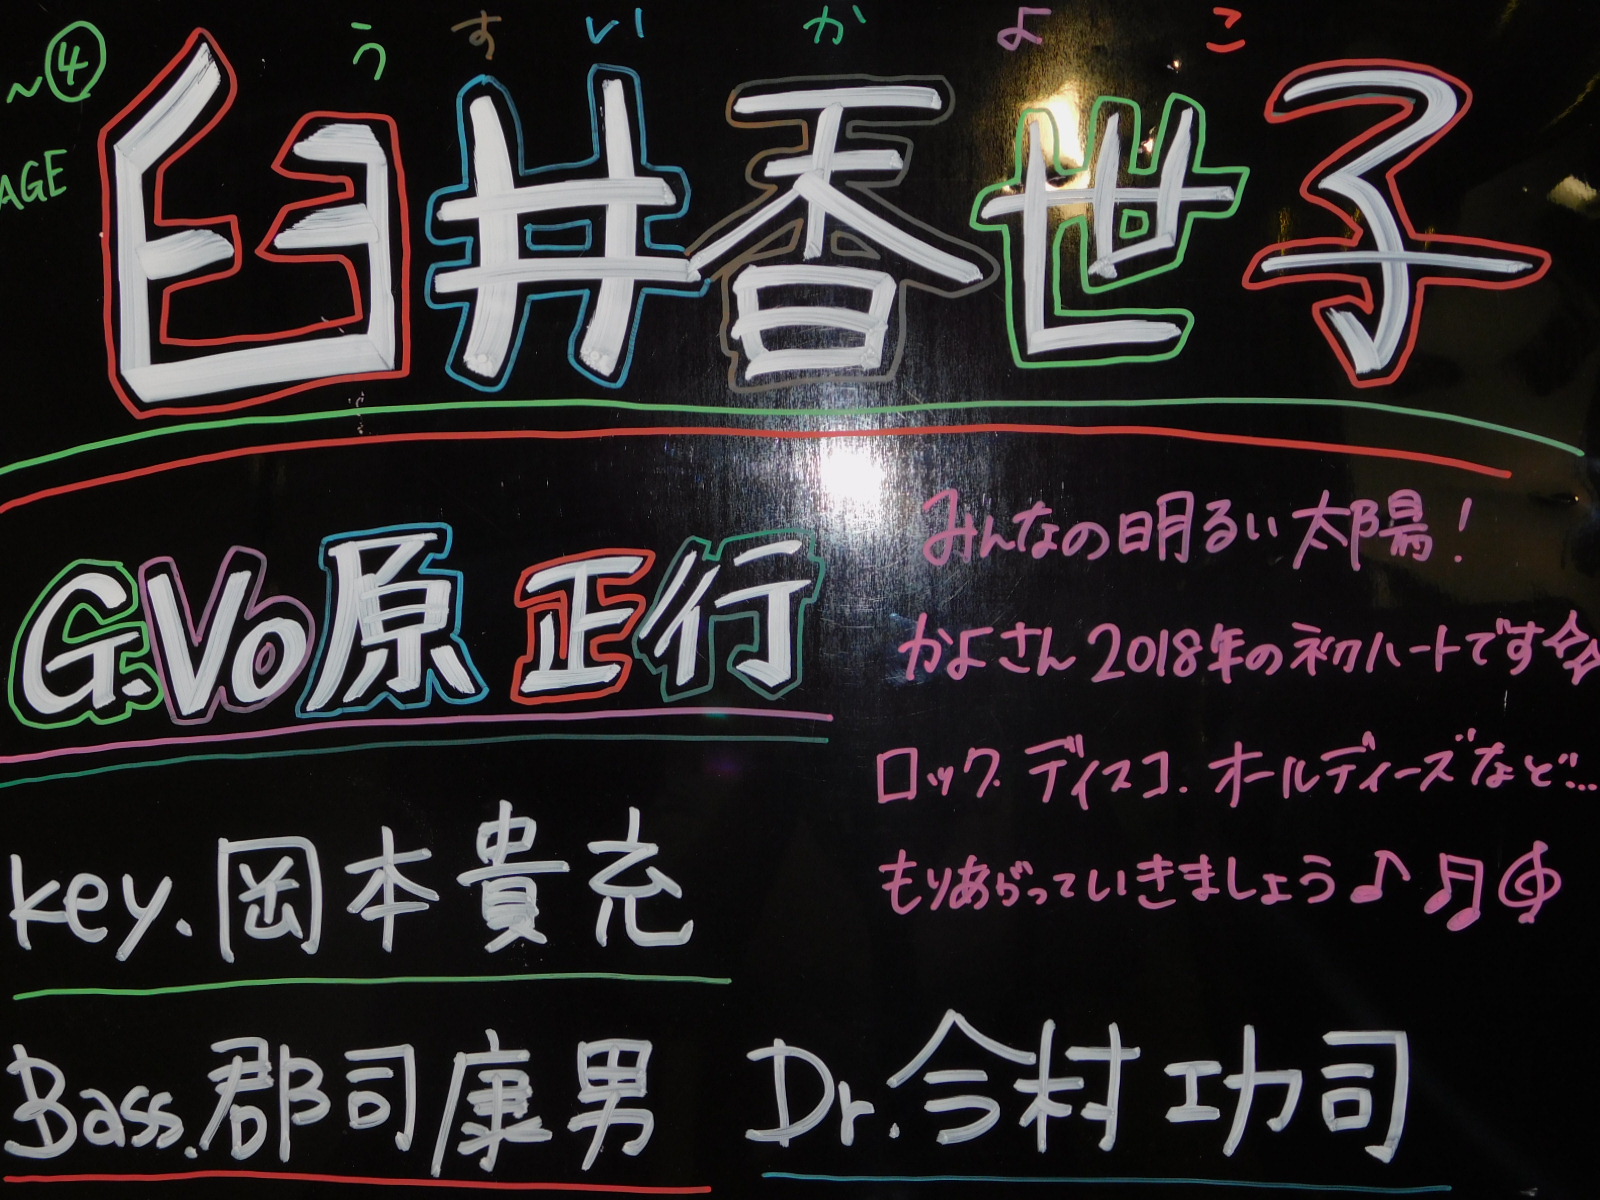 ~④
AGE
うすいかよこ
臼井香世子
G.Vo原 正行
みんなの明るい太陽!
かよさん2018年のネクハートです
ロック.ディスコ.オールディーズなど...
もりあがっていきましょう♪
key.岡本貴充
Bass.郡司康男
Dr.今村功司